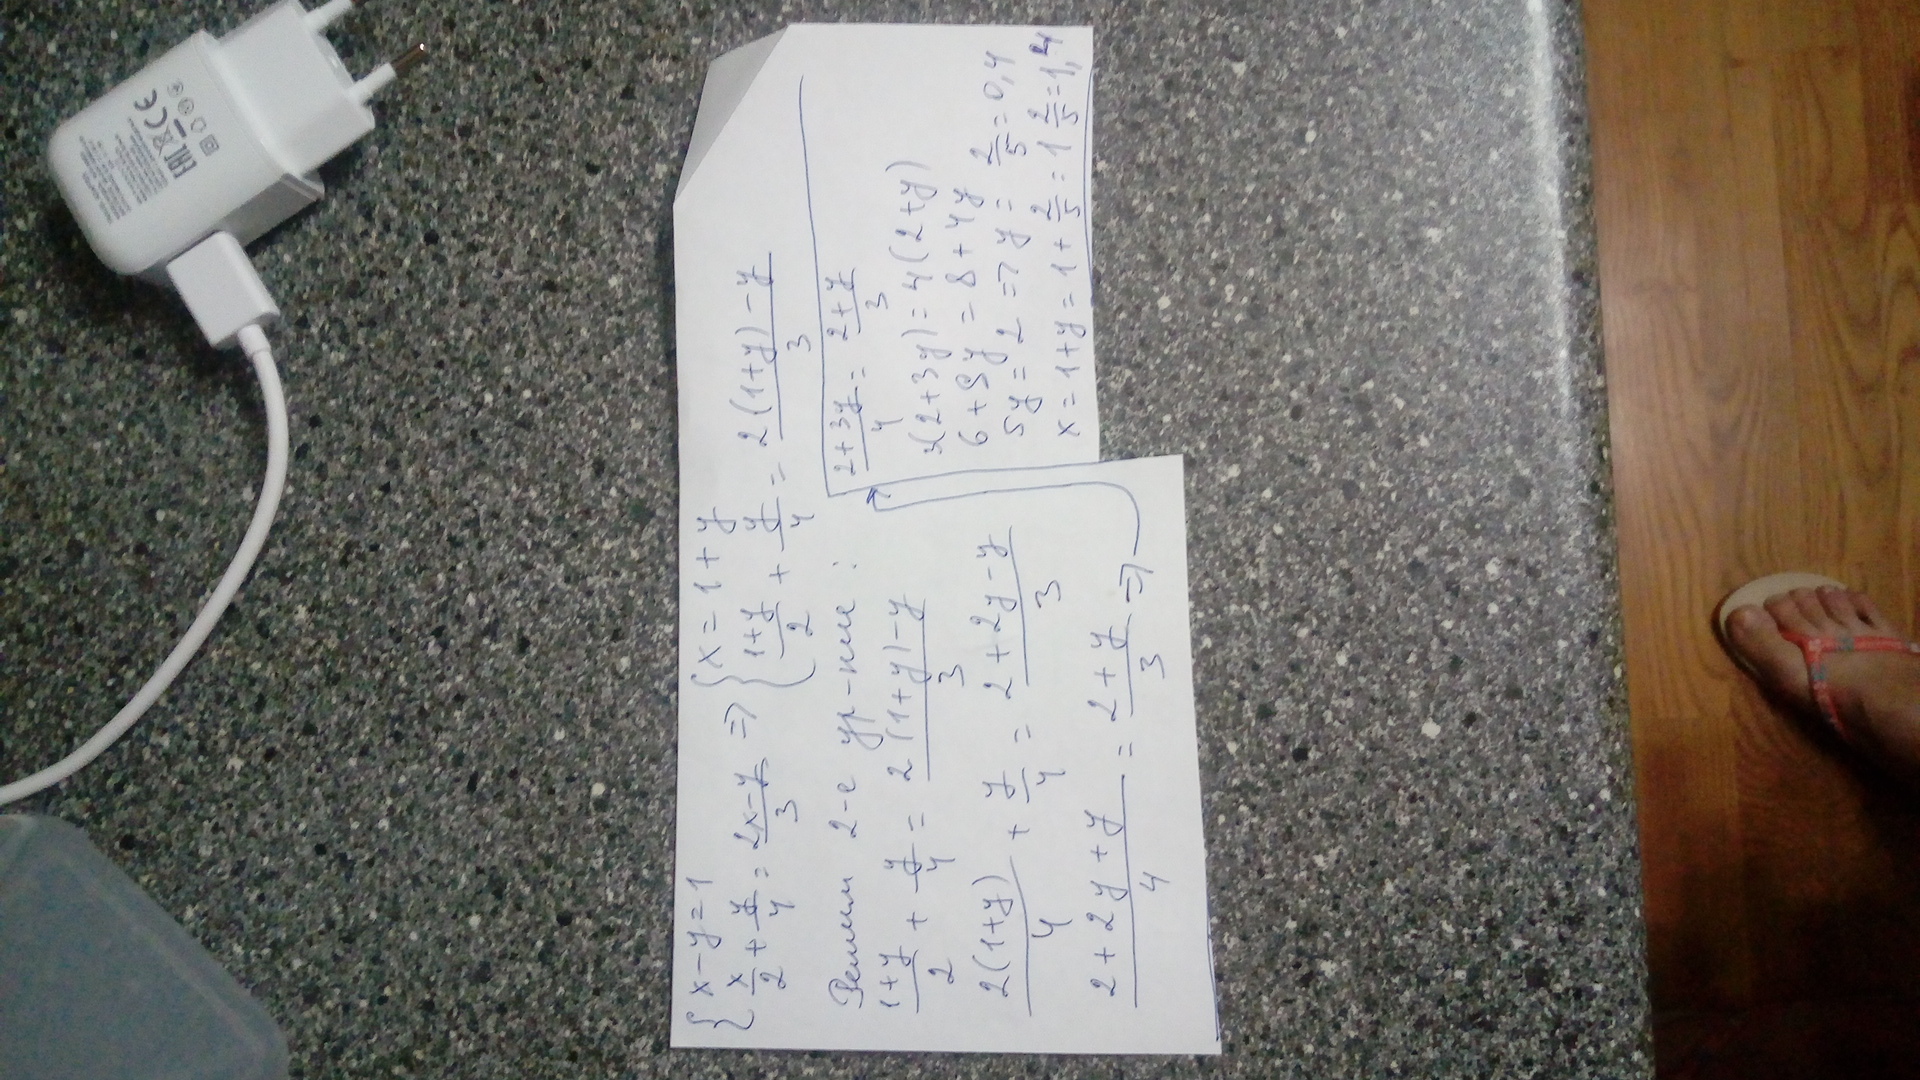 { x - y = 1
x/2 + y/4 = (2x - y)/3 => { x = 1 + y
(1+y)/2 + y/4 = (2(1+y) - y)/3
Решим 2-е ур-ние :
(1+y)/2 + y/4 = (2(1+y) - y)/3
2(1+y)/4 + y/4 = (2+2y-y)/3
(2+2y+y)/4 = (2+y)/3 =>
(2+3y)/4 = (2+y)/3
3(2+3y) = 4(2+y)
6+9y = 8+4y
5y = 2 => y = 2/5 = 0,4
x = 1+y = 1 + 2/5 = 1 2/5 = 1,4
EAC
CE